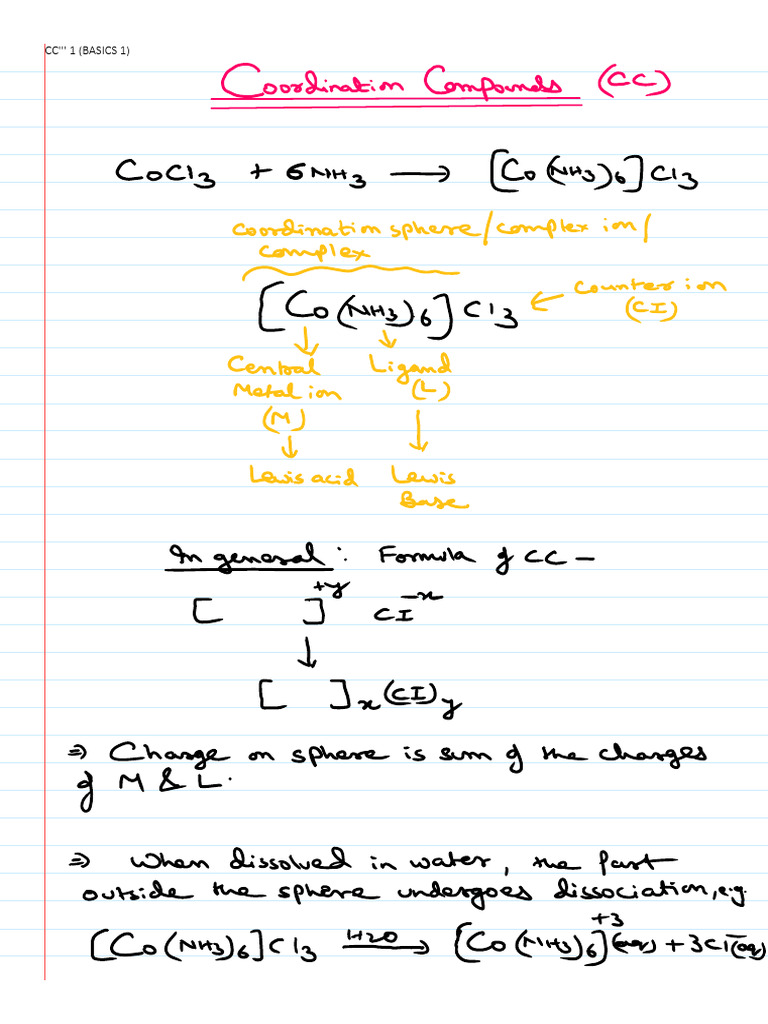 CC''' 1 (BASICS 1)
Coordination Compounds (CC)
CoCl3 + 6NH3 → [Co(NH3)6]Cl3
Coordination sphere/complex ion/
complex
[Co(NH3)6]Cl3 ← Counter ion
(CI)
↓ ↓
Central Ligand
Metal ion (L)
(M)
↓ ↓
Lewis acid Lewis
Base
In general: Formula of CC –
[ ]+y CI-x
↓
[ ]x(CI)y
⇒ Charge on sphere is sum of the charges
of M & L.
⇒ When dissolved in water, the part
outside the sphere undergoes dissociation, e.g.
[Co(NH3)6]Cl3 H2O→ [Co(NH3)6]+3(aq) + 3Cl–(aq)